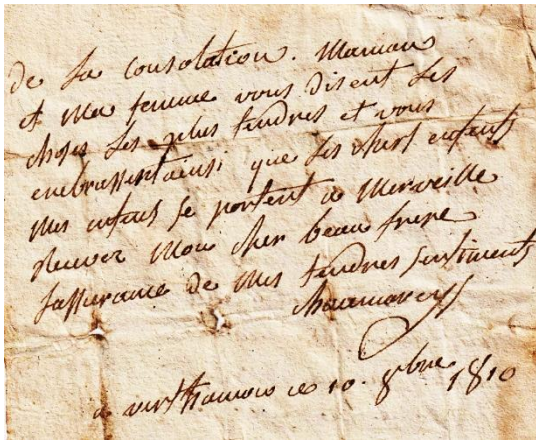 de la consolation. Maman
et Ma femme vous disent les
choses les plus tendres et vous
embrassent ainsi que les chers enfants
Mes enfans se portent a Merveille
Recever Mon cher beau frere
lassurance de Mes tendres sentiments
a ce 10. 8bre 1810